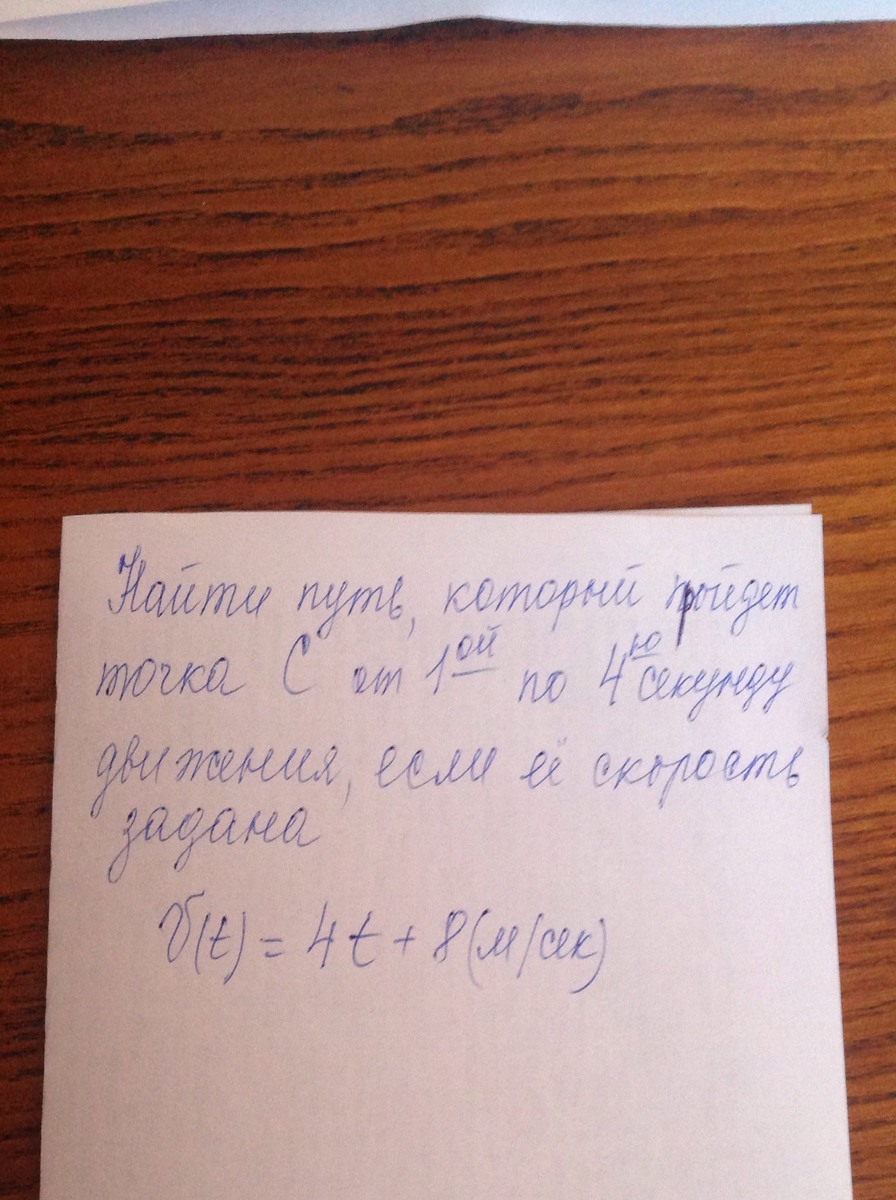 Найти путь, который пройдет
точка C от 1ой по 4ю секунду
движения, если её скорость
задана
V(t) = 4t + 8 (м/сек)